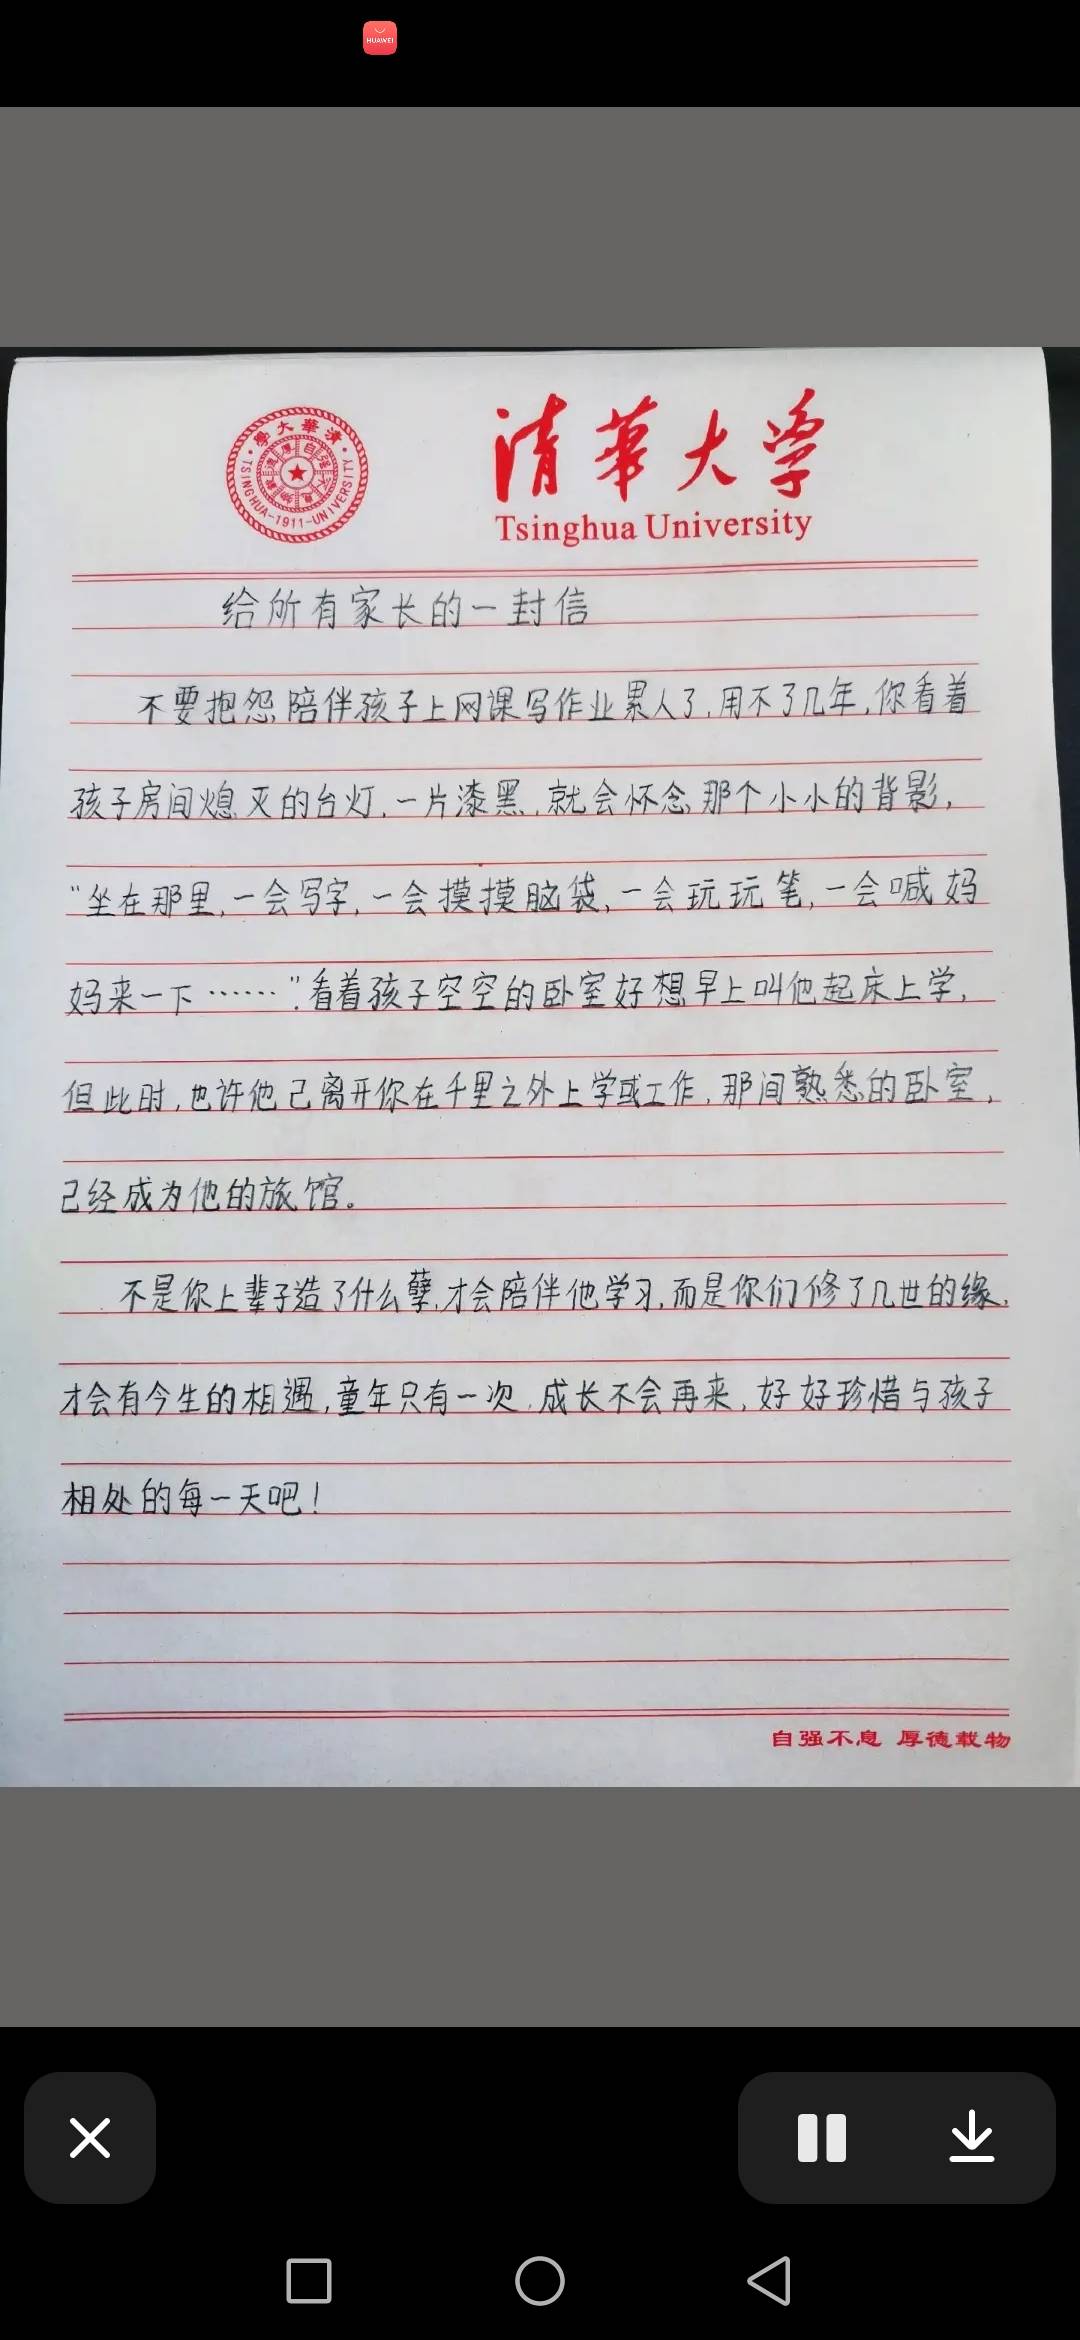 HUAWEI
清華大學
TSINGHUA-1911-UNIVERSITY
自强不息
清華大学
Tsinghua University
给所有家长的一封信
不要抱怨陪伴孩子上网课写作业累人了,用不了几年,你看着
孩子房间熄灭的台灯,一片漆黑,就会怀念那个小小的背影,
“坐在那里,一会写字,一会摸摸脑袋,一会玩玩笔,一会喊妈
妈来一下……”.看着孩子空空的卧室好想早上叫他起床上学,
但此时,也许他己离开你在千里之外上学或工作,那间熟悉的卧室,
己经成为他的旅馆。
不是你上辈子造了什么孽,才会陪伴他学习,而是你们修了几世的缘,
才会有今生的相遇,童年只有一次,成长不会再来,好好珍惜与孩子
相处的每一天吧!
自强不息 厚德载物